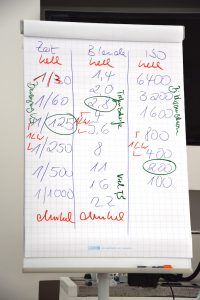 Zeit Blende ISO
hell hell hell
1/30 1,4 6400
1/60 2,0 3200
1/125 2,8 1600
1/250 4 800
5,6 400
1/500 8 200
1/1000 11 100
16
22
dunkel dunkel
Viel TS
1 LW
1 LW